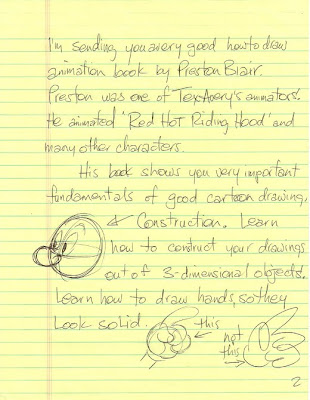 I'm sending you a very good how to draw
animation book by Preston Blair.
Preston was one of Tex Avery's animators.
He animated 'Red Hot Riding Hood' and
many other characters.
His book shows you very important
fundamentals of good cartoon drawing.
Construction. Learn
how to construct your drawings
out of 3-dimensional objects.
Learn how to draw hands, so they
look solid.
this
not
this
2